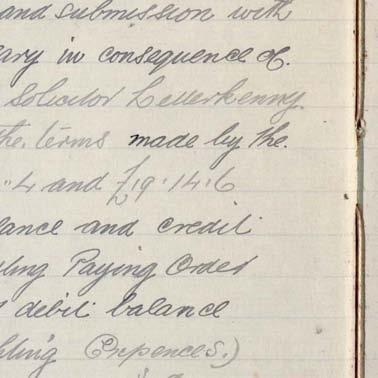 and submission with
ary in consequence of.
Solicitor Letterkenny
the terms made by the.
4 and £19.14.6
lance and credit
ling Paying Order
debit balance
(Expences.)